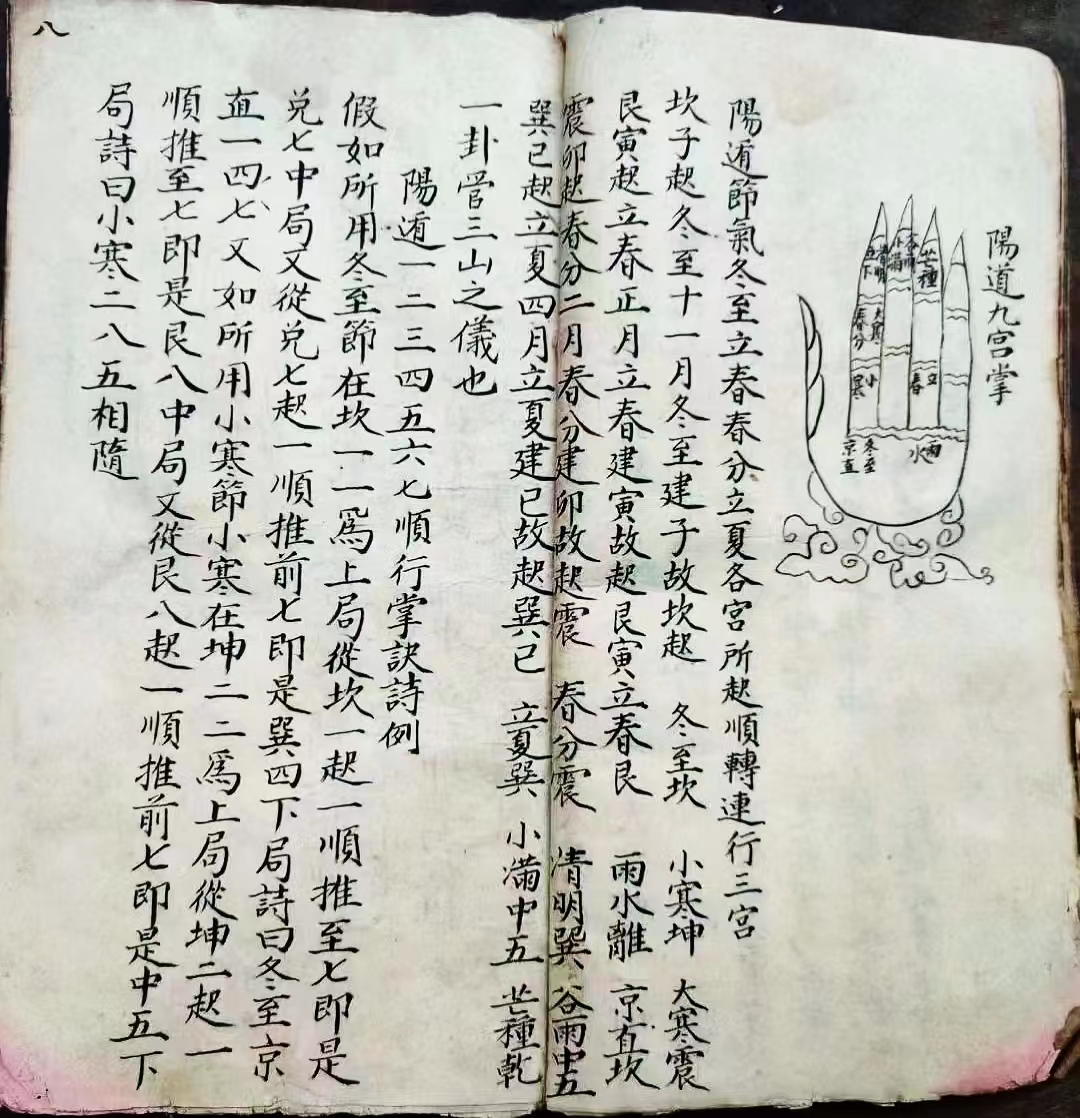 陽道九宫掌
芒種
小滿
谷雨
清明
立下
大寒
春分
小寒
立春
冬至
京直
雨水
陽遁節氣冬至立春春分立夏各宫所起順轉連行三宫
坎子起冬至十一月冬至建子故坎起 冬至坎 小寒坤 大寒震
艮寅起立春正月立春建寅故起艮寅立春艮 雨水離 京直坎
震卯起春分二月春分建卯故起震 春分震 清明巽 谷雨中五
巽已起立夏四月立夏建已故起巽已 立夏巽 小滿中五 芒種乾
一卦管三山之儀也
陽遁一二三四五六七順行掌訣詩例
假如所用冬至節在坎一一爲上局從坎一起一順推至七即是
兑七中局又從兑七起一順推前七即是巽四下局詩曰冬至京
直一四七又如所用小寒節小寒在坤二二爲上局從坤二起一
順推至七即是艮八中局又從艮八起一順推前七即是中五下
局詩曰小寒二八五相隨
八